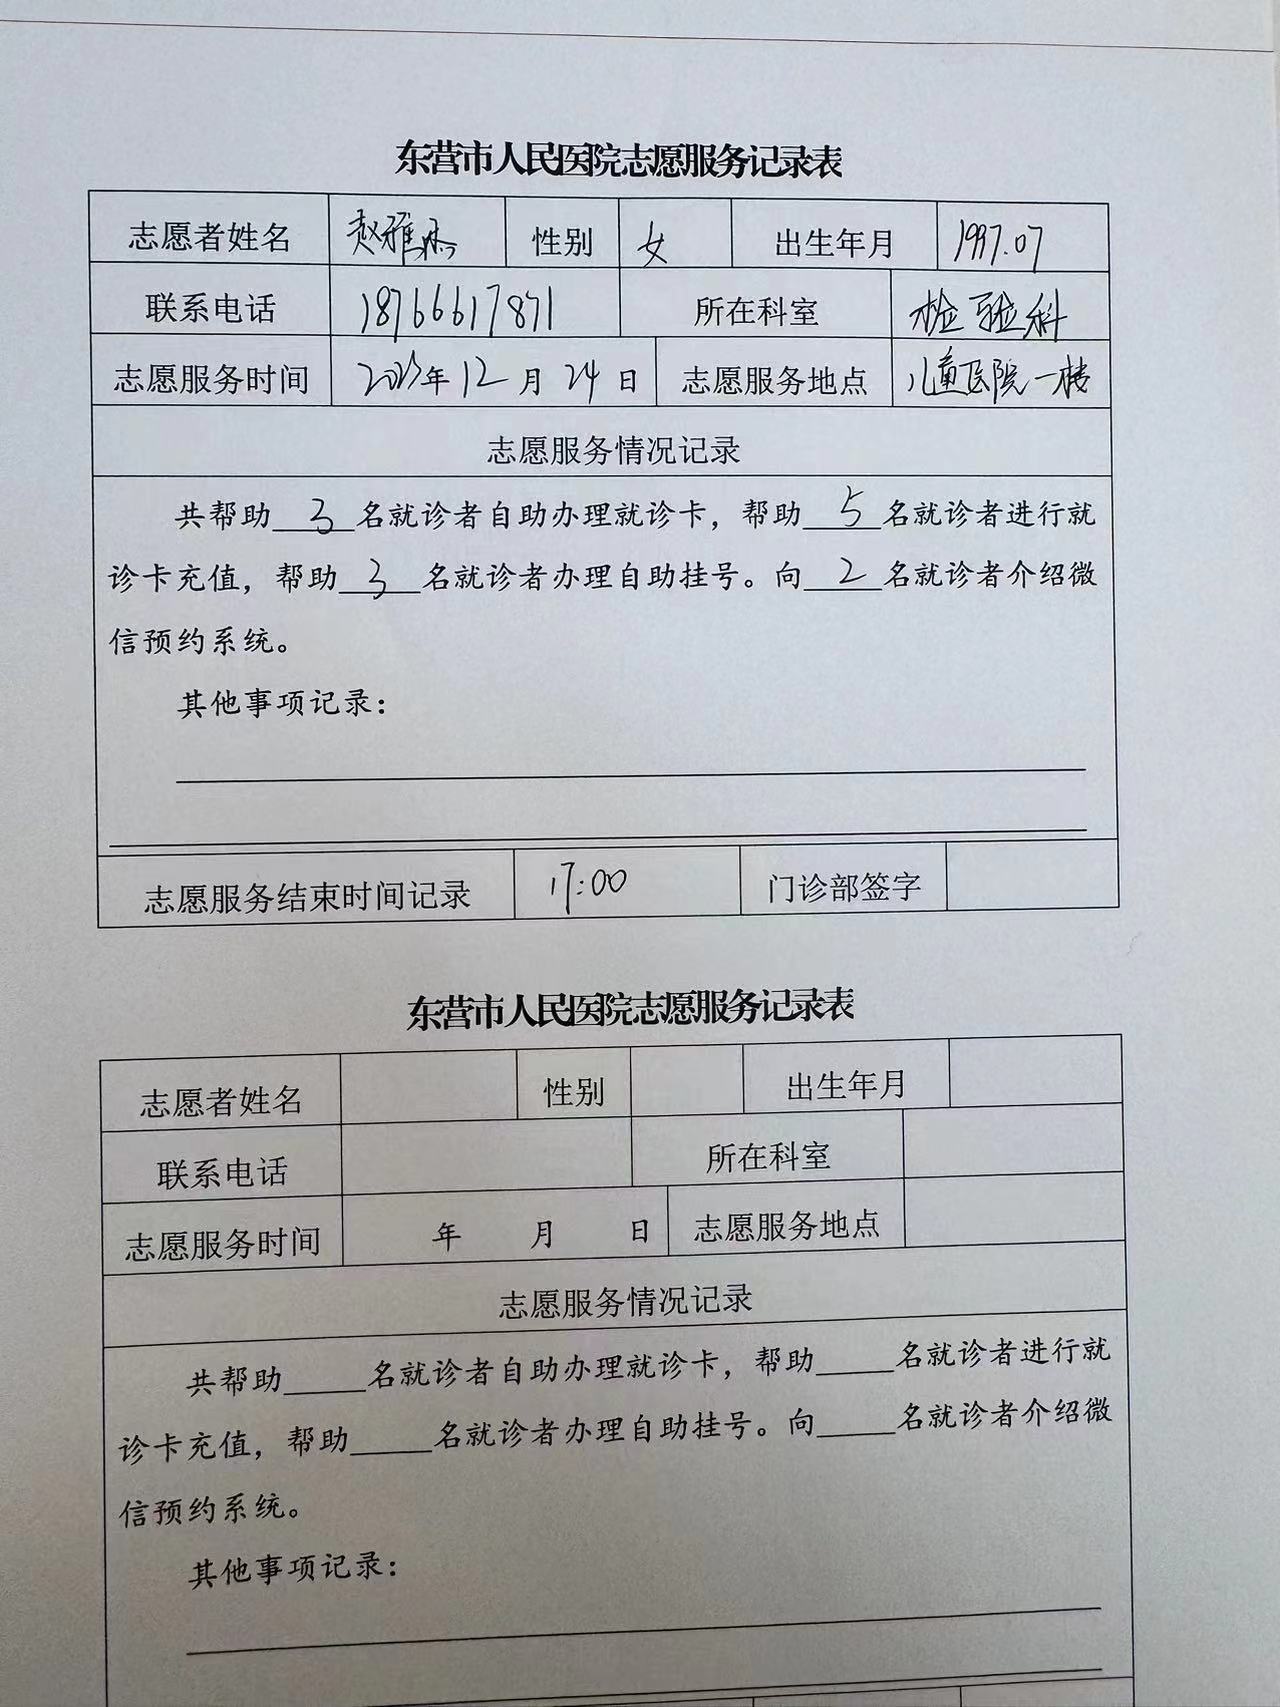 东营市人民医院志愿服务记录表
志愿者姓名 赵雅杰 性别 女 出生年月 1997.07
联系电话 18766617871 所在科室 检验科
志愿服务时间 2023年12月24日 志愿服务地点 儿童医院一楼
志愿服务情况记录
共帮助 3 名就诊者自助办理就诊卡，帮助 5 名就诊者进行就
诊卡充值，帮助 3 名就诊者办理自助挂号。向 2 名就诊者介绍微
信预约系统。
其他事项记录：
志愿服务结束时间记录 17:00 门诊部签字
东营市人民医院志愿服务记录表
志愿者姓名 性别 出生年月
联系电话 所在科室
志愿服务时间 年 月 日 志愿服务地点
志愿服务情况记录
共帮助_____名就诊者自助办理就诊卡，帮助_____名就诊者进行就
诊卡充值，帮助_____名就诊者办理自助挂号。向_____名就诊者介绍微
信预约系统。
其他事项记录：